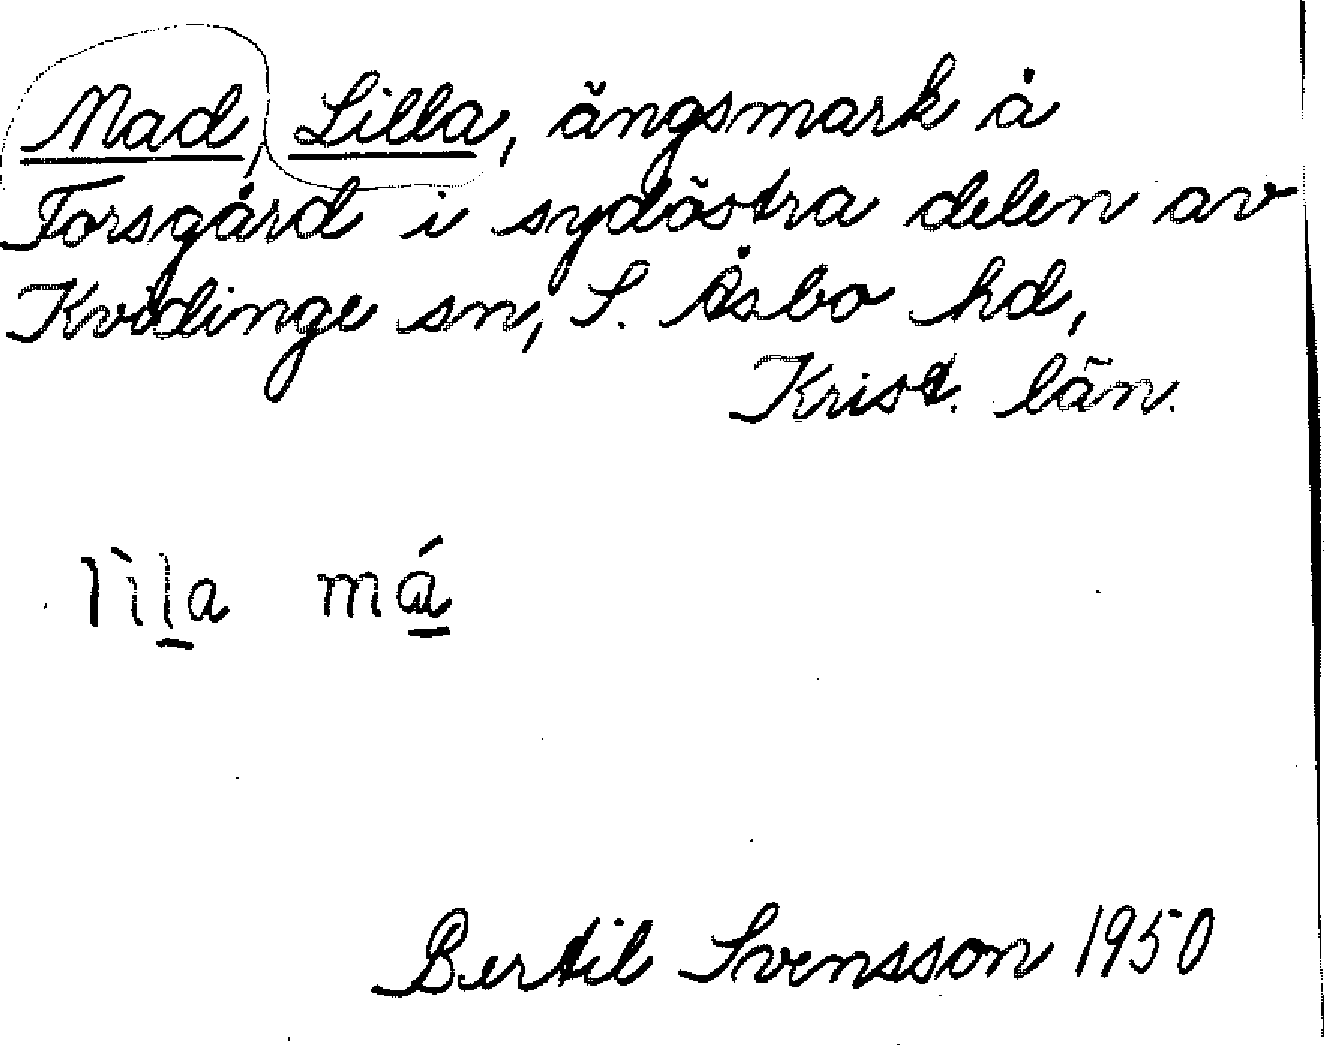 Mad, Lilla, ängsmark å
Torsgård i sydöstra delen av
Kvidinge sn, S. Åsbo hd,
Krist. län.
lìla má
Bertil Svensson 1950